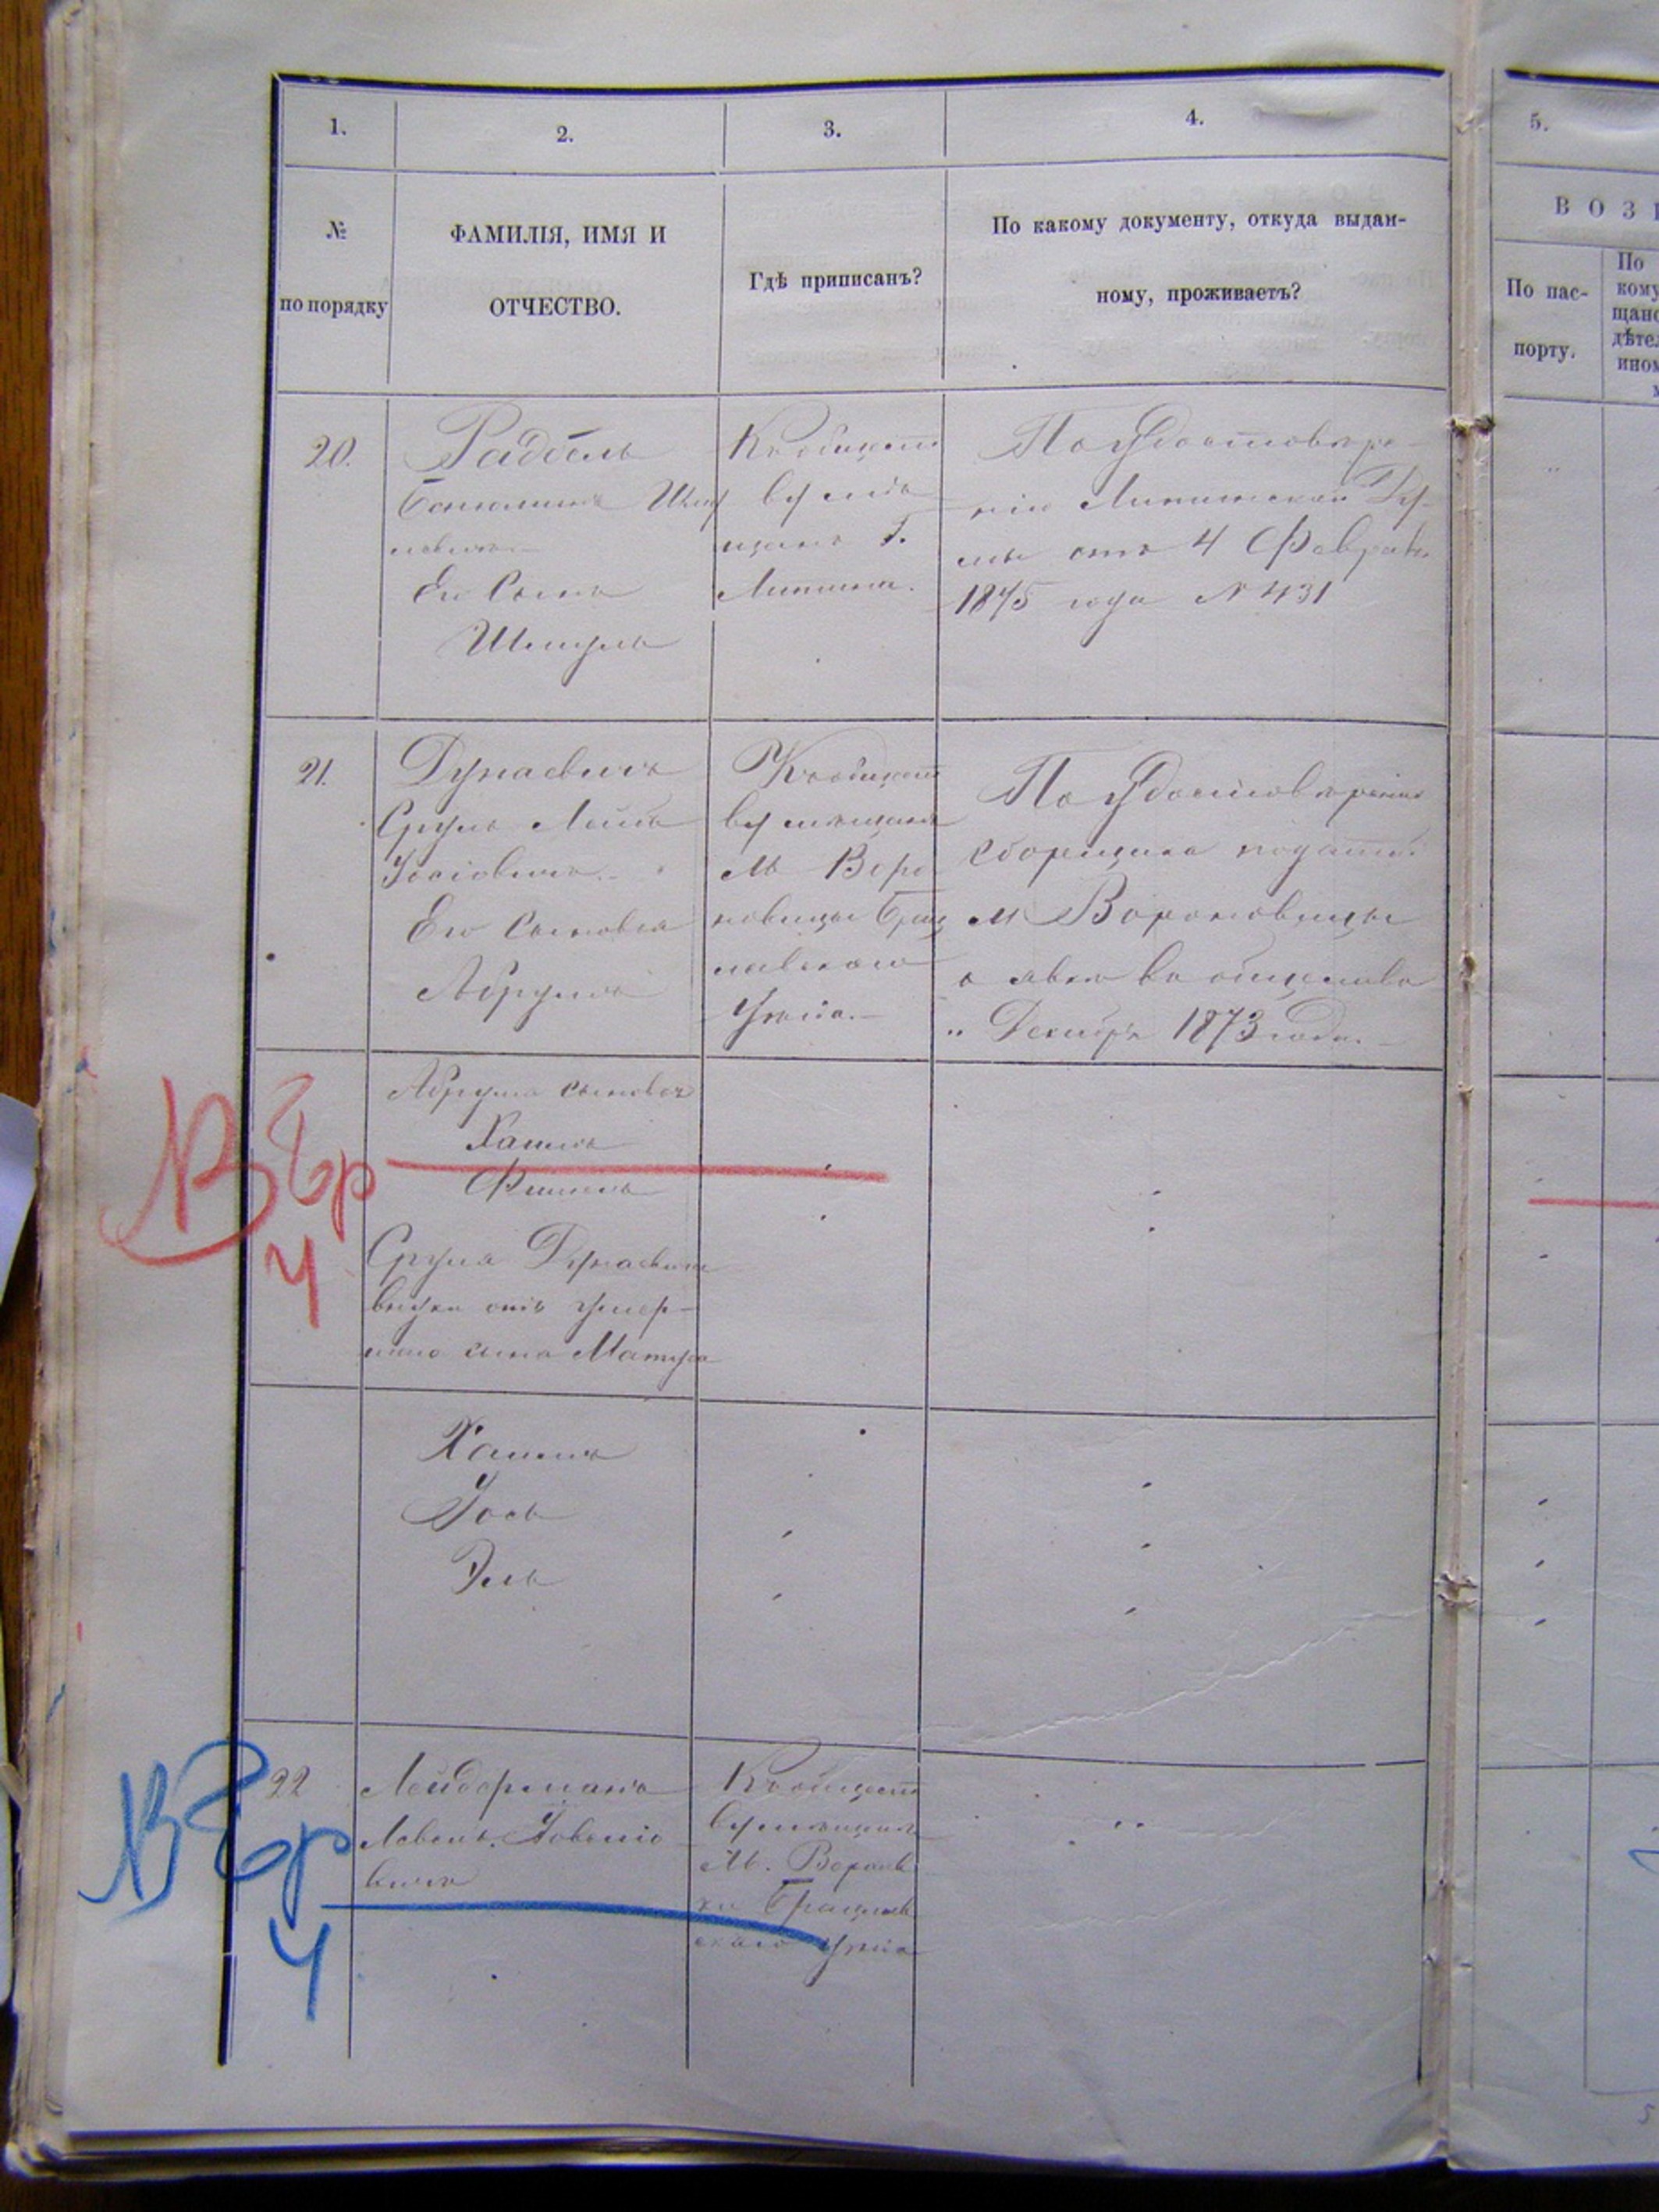 1.
2.
3.
4.
5.
№
по порядку
ФАМИЛІЯ, ИМЯ И
ОТЧЕСТВО.
Гдѣ приписанъ?
По какому документу, откуда выдан-
ному, проживаетъ?
ВОЗ
По пас-
порту.
По
кому
щанс
дѣтел
ином
20.
Раддель
Его Сынъ
Шмуль
Къ обществ
ву мѣ
щанъ г.
Липина.
По удостовѣре-
нію Ду-
мы отъ 4 Февраля
1875 года № 431
21.
Дунаевичъ
Сруль Лейба
Іосіовичъ
Его Сыновья
Абрумъ
Къ обществ
ву мѣщанъ
м Воро
новицы Брац
лавскаго
Уѣзда.
По удостовѣренію
сборщика податей
м Вороновицы
" Декабря 1873 года.
Абрума сыновья
Хаимъ
Фишель
Сруля Дунаевича
внуки отъ умер-
шаго сына
Хаимъ
Іось
Эль
22
Лейдерманъ
вичъ
Къ обществ
ву мѣщанъ
м. Воронов
Брацлав
скаго Уѣзда
4
4